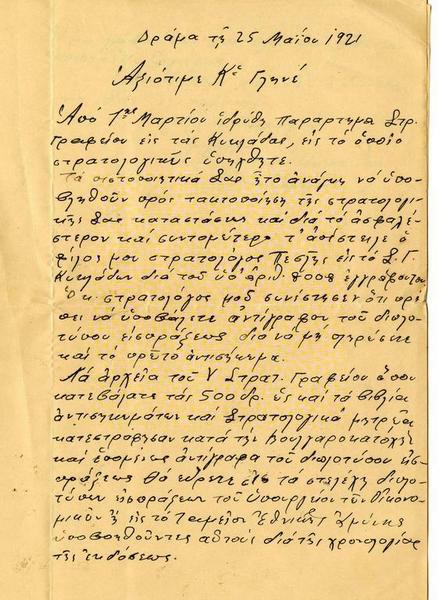 Δράμα τῇ 25 Μαΐου 1921
Ἀξιότιμε Κε Γληνέ
Ἀπό 1ης Μαρτίου ἱδρύθη παράρτημα Στρ.
Γραφείου εἰς τάς Κυκλάδας, εἰς τό ὁποῖο
στρατολογικῶς ὑπήχθητε.
Τά πιστοποιητικά Σας ἦτο ἀνάγκη νά ὑπο-
βληθοῦν πρός τακτοποίηση τῆς στρατολογι-
κῆς Σας καταστάσεως καί διά τό ἀσφαλέ-
στερον καί συντομώτερο τ' ἀπέστειλε ὁ
φίλος μου στρατολόγος Πεσξῆς εἰς τό Σ.Γ.
Κυκλάδων διά τοῦ ὑπ' ἀριθ. ἐγγράφου του
Ὁ κ. στρατολόγος μοῦ συνίστησεν ὅτι πρέ-
πει νά ὑποβάλετε ἀντίγραφον τοῦ διπλο-
τύπου εἰσπράξεως διά νά μή πληρώσετε
καί τό πρῶτο ἀντισήκωμα.
Τά ἀρχεῖα τοῦ V Στρατ. Γραφείου ὅπου
κατεβάλατε τάς 500 δρ. ὡς καί τά βιβλία
ἀντισηκωμάτων καί Στρατολογικά μητρῶα
κατεστράφησαν κατά τήν Βουλγαροκατοχή
καί ἑπομένως ἀντίγραφα τοῦ διπλοτύπου εἰσ-
πράξεως θά εὕρετε εἰς τά στελέχη διπλο-
τύπων εἰσπράξεων τοῦ Ὑπουργείου τῶν Οἰκονο-
μικῶν ἤ εἰς τό Ταμεῖον Ἐθνικῆς Ἀμύνης
ὑποβοηθοῦντες αὐτούς διά τῆς χρονολογίας
τῆς ἐκδόσεως.